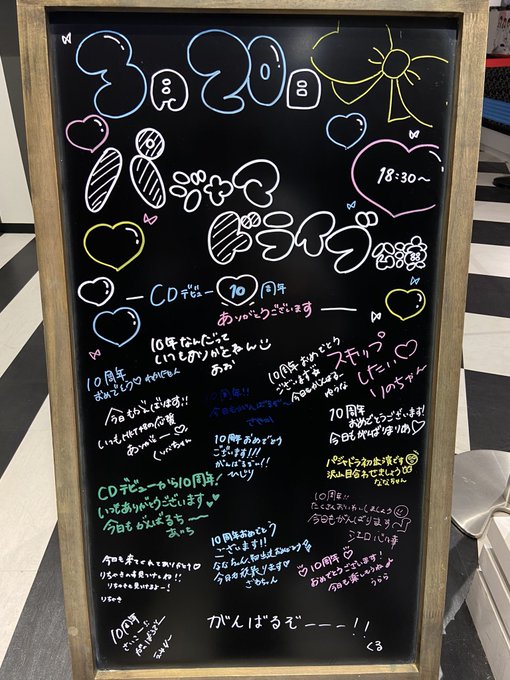 3月20日
18:30〜
パジャマ
ドライブ公演
CDデビュー10周年
ありがとうございます
10年なんだって
いつもありがとねん
あお
10周年
おめでとう
10周年おめでとう
ございます
今日もがんばるー
ゆうな
スキップ
したい
りのちゃん
今日もがんばります!!
いつもたくさんの応援
ありがとー
10周年!!
今日もがんばるぞ〜
10周年おめでとう
ございます!!!
がんばるぞー!!
ひじり
10周年
おめでとうございます!
今日もがんばりまりめ
パジャドラ初出演です
沢山目合わせましょう
ななちゃん
CDデビューから10周年!
いつもありがとうございます
今日もがんばるち〜
あいち
10周年!!
たくさんおいわいしましょう
今日もがんばります
10周年おめでとう
ございます!!
今日も来てくれてありがとう
りちゃきの事見つけてね!!
りちゃきも見つけまるー!
りちゃき
10周年!
おめでとうございます!
今日も楽しもうね
うらら
10周年
がんばるぞーーー!!
くる